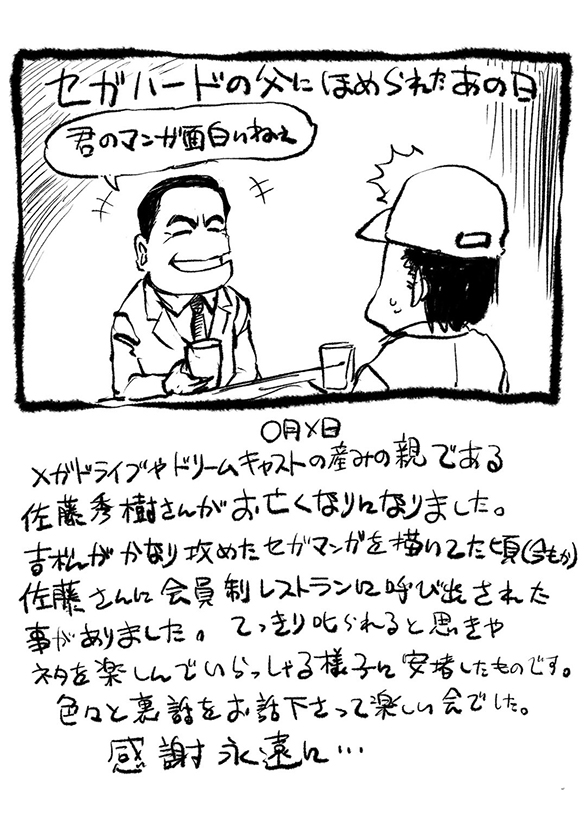 セガハードの父にほめられたあの日
君のマンガ面白いねぇ
〇月×日
メガドライブやドリームキャストの産みの親である
佐藤秀樹さんがお亡くなりになりました。
吉松がかなり攻めたセガマンガを描いてた頃(今もか)
佐藤さんに会員制レストランに呼び出された
事がありました。てっきり叱られると思きや
ネタを楽しんでいらっしゃる様子に安堵したものです。
色々と裏話をお話下さって楽しい会でした。
感謝永遠に…